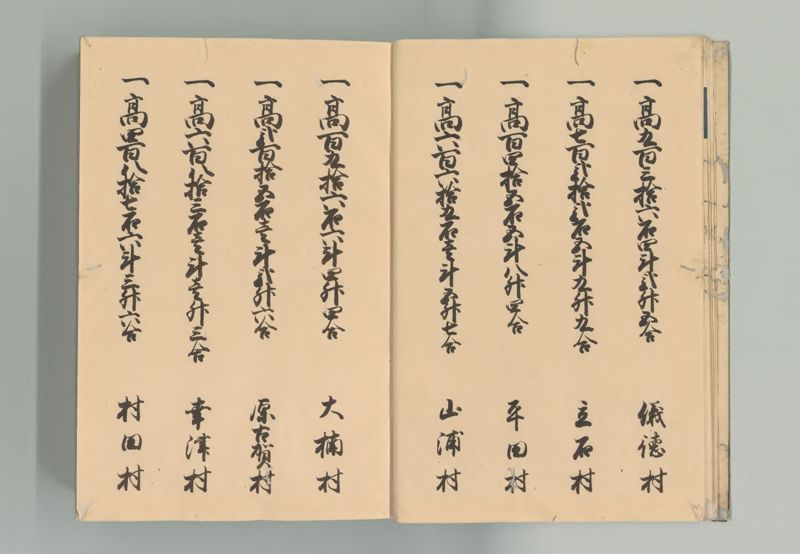 一高五百三拾六石四斗弐升五合 儀徳村
一高七百弐拾弐石五斗九升九合 立石村
一高百四拾五石五斗八升四合 平田村
一高六百六拾五石壱斗五升七合 山浦村
一高百九拾六石六斗四升四合 大楠村
一高弐百拾五石壱斗弐升六合 原古賀村
一高六百八拾三石壱斗壱升三合 幸津村
一高四百八拾七石六斗三升六合 村田村